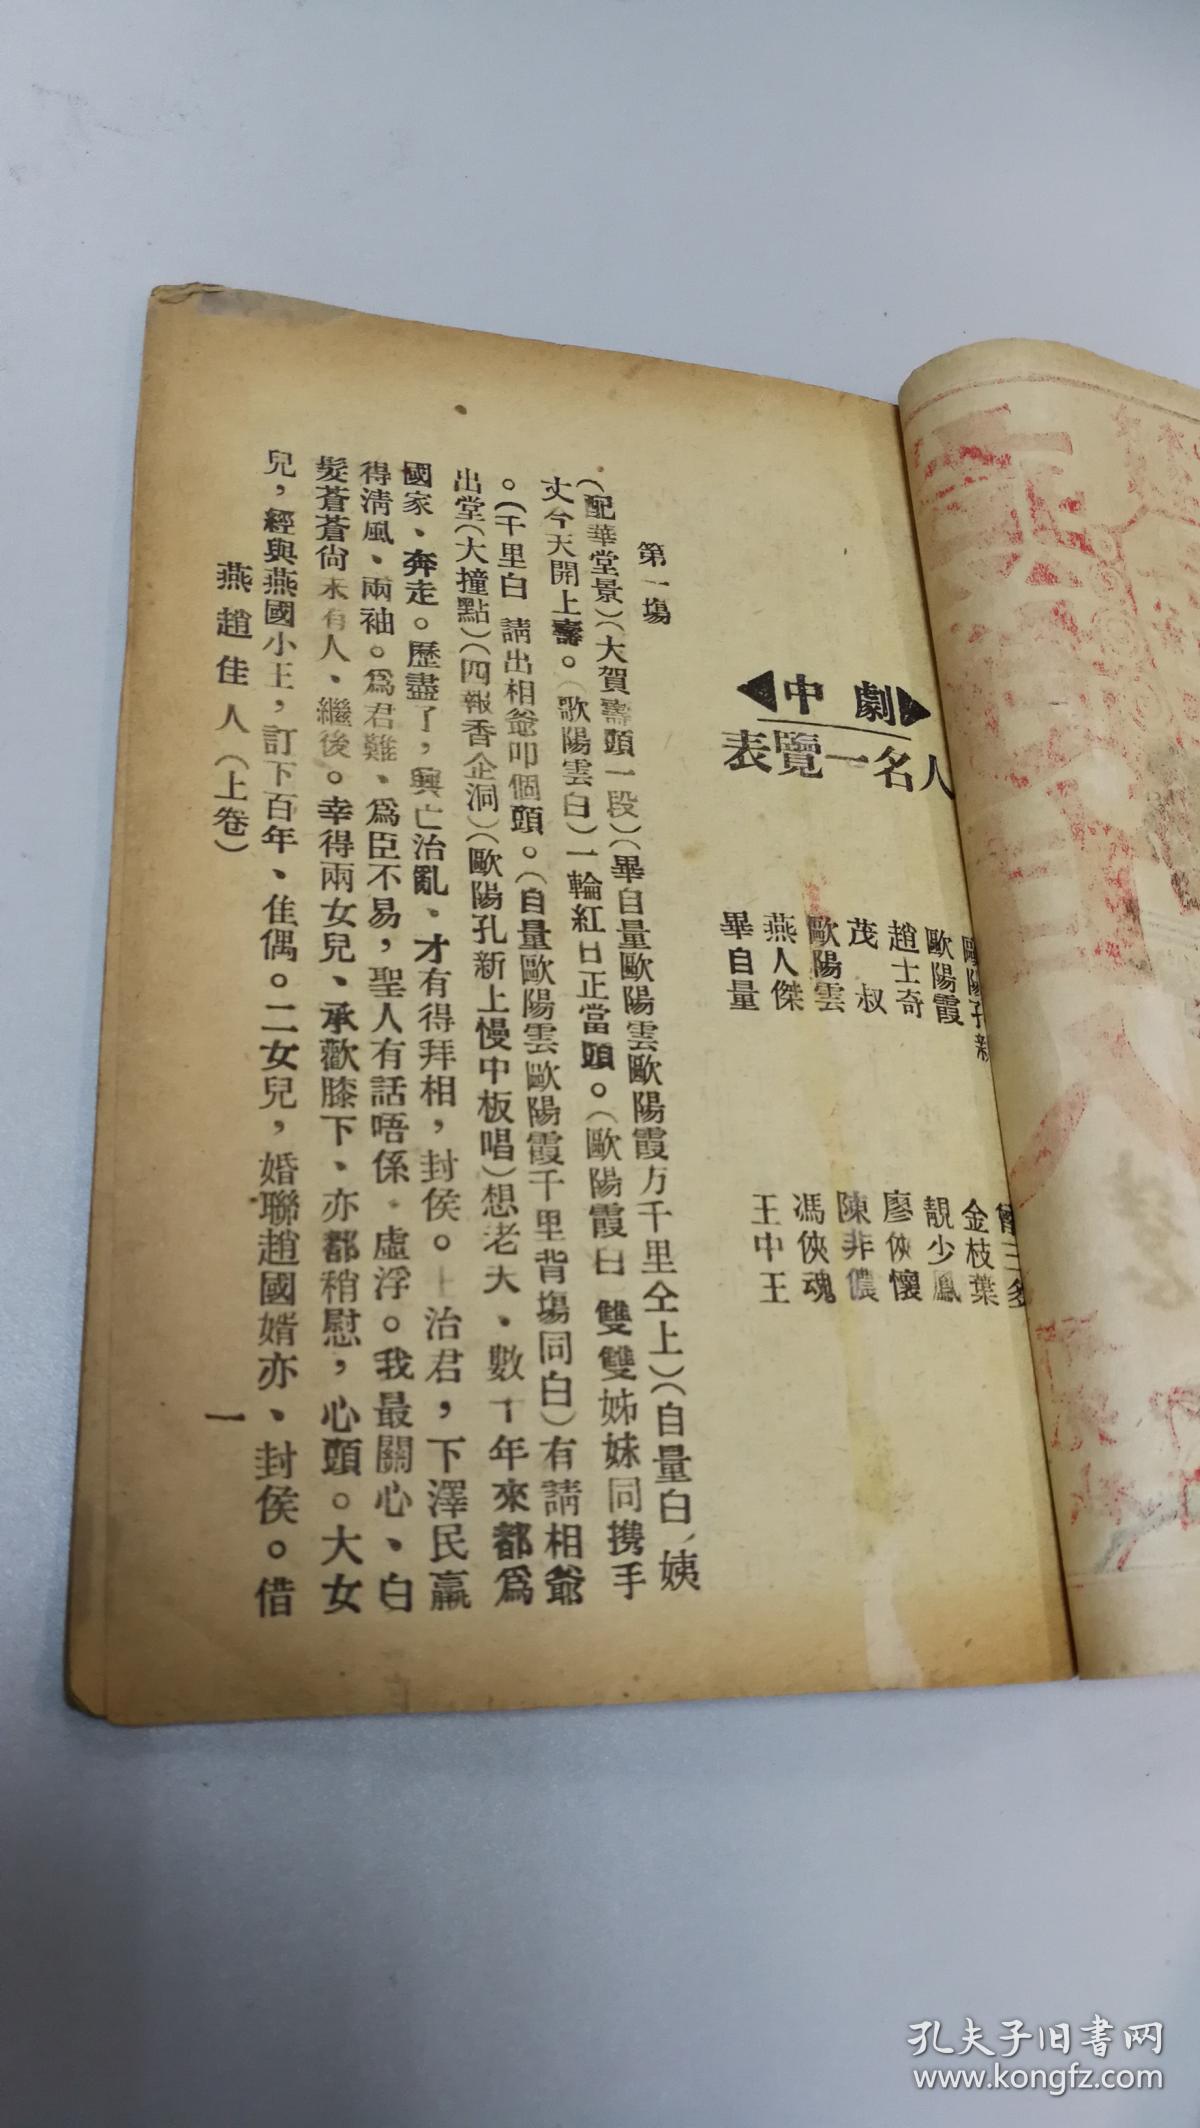 劇中
人名一覽表
歐陽孔新
歐陽霞
趙士奇
茂叔
歐陽雲
燕人傑
畢自量
曾三多
金枝葉
靚少鳳
廖俠懷
陳非儂
馮俠魂
王中王
第一塲
(配華堂景)(大賀壽頭一段)(畢自量歐陽雲歐陽霞万千里仝上)(自量白、姨
丈今天開上壽。(歐陽雲白)一輪紅日正當頭。(歐陽霞白 雙雙姊妹同携手
。(千里白 請出相爺叩個頭。(自量歐陽雲歐陽霞千里背塲同白)有請相爺
出堂(大撞點)(四報香企洞)(歐陽孔新上慢中板唱)想老夫、數十年來都爲
國家、奔走。歷盡了，興亡治亂、才有得拜相，封侯。上治君，下澤民贏
得淸風、兩袖。爲君難、爲臣不易，聖人有話唔係、虛浮。我最關心、白
髮蒼蒼尙未有人、繼後。幸得兩女兒、承歡膝下、亦都稍慰，心頭。大女
兒，經與燕國小王，訂下百年、佳偶。二女兒，婚聯趙國婿亦、封侯。借
燕趙佳人(上卷)
一
孔夫子旧书网
www.kongfz.com